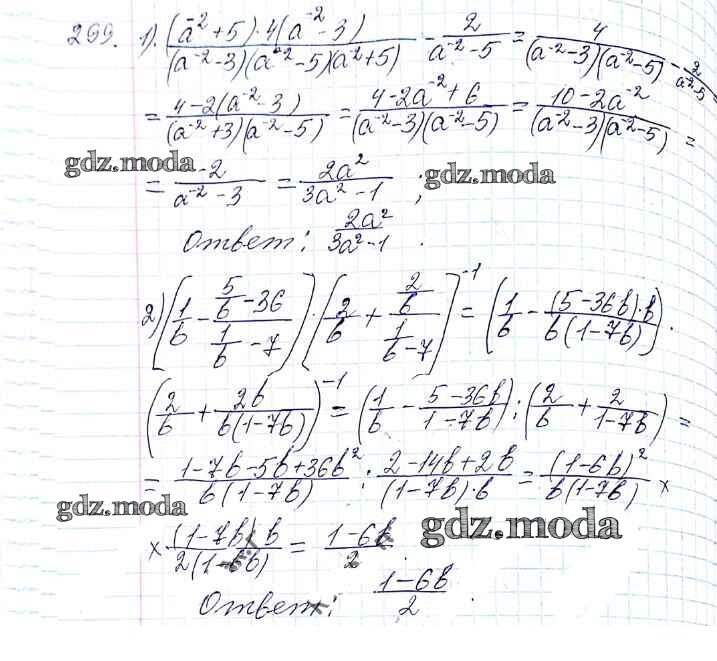 299. 1). ((a⁻²+5)·4(a⁻²-3))/((a⁻²-3)(a⁻²-5)(a⁻²+5)) - 2/(a⁻²-5) = 4/((a⁻²-3)(a⁻²-5)) - 2/(a⁻²-5) =
= (4-2(a⁻²-3))/((a⁻²+3)(a⁻²-5)) = (4-2a⁻²+6)/((a⁻²-3)(a⁻²-5)) = (10-2a⁻²)/((a⁻²-3)(a⁻²-5)) =
gdz.moda
gdz.moda
= -2/(a⁻²-3) = 2a²/(3a²-1) ;
Ответ: 2a²/(3a²-1) .
2) [1/b - (5/b-36)/(1/b-7)]·[2/b + (2/b)/(1/b-7)]⁻¹ = (1/b - ((5-36b)·b)/(b(1-7b))).
(2/b + 2b/(b(1-7b)))⁻¹ = (1/b - (5-36b)/(1-7b)) : (2/b + 2/(1-7b)) =
= (1-7b-5b+36b²)/(b(1-7b)) : (2-14b+2b)/((1-7b)·b) = (1-6b)²/(b(1-7b)) ×
gdz.moda
× ((1-7b) b)/(2(1-6b)) = (1-6b)/2
gdz.moda
Ответ: (1-6b)/2 .